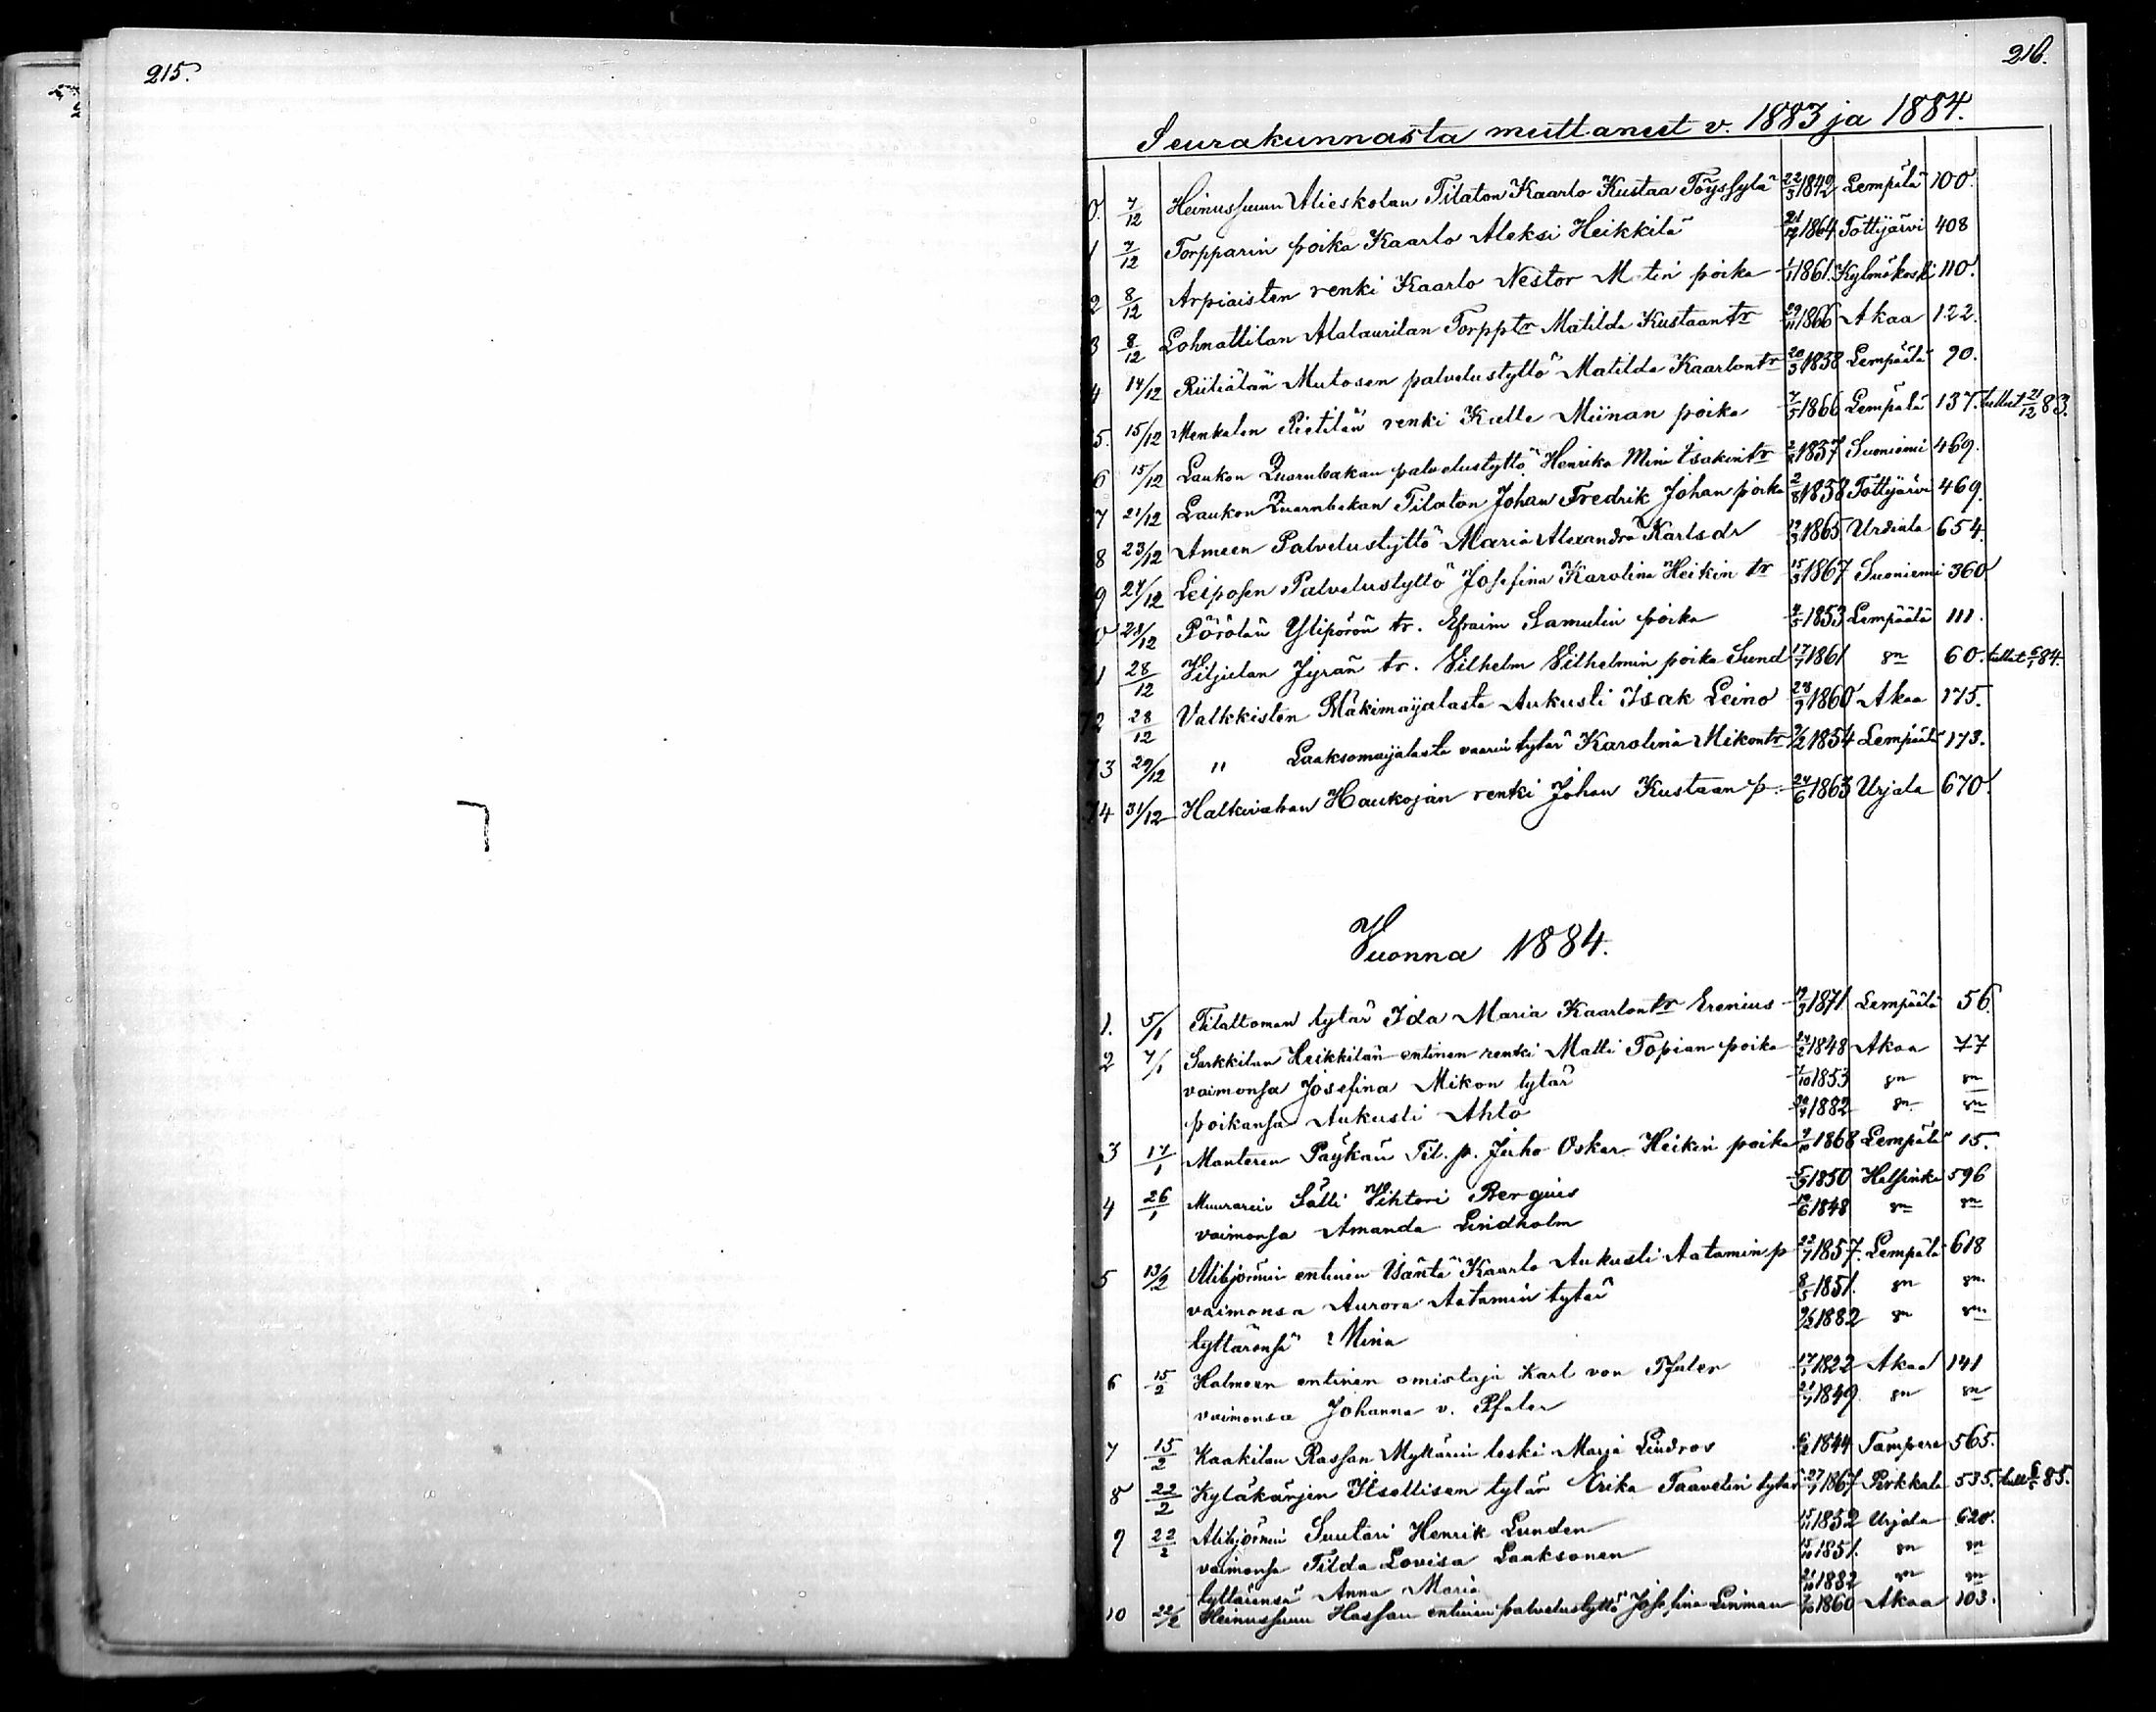 215.
216.
Seurakunnasta muuttanut v. 1883 ja 1884.
0. 7/12 Heinussuun Alieskolan Tilaton Kaarlo Kustaa Töyssylä 22/3 1842 Lempälä 100.
1 7/12 Torpparin poika Kaarlo Aleksi Heikkilä 1864 Tottijärvi 408
2 8/12 Arpiaisten renki Kaarlo Nestor M tin poika 1861. Kylmäkoski 110.
3 8/12 Lohnattilan Alalaurilan Torpp tr Matilda Kustaan tr 29/11 1866 Akaa 122.
4 14/12 Mutosen palvelustyttö Matilda Kaarlon tr 20/3 1838 Lempäälä 90.
5. 15/12 Menkalan Pietilän renki Kalle Miinan poika 7/5 1866 Lempälä 137. tullut 21/12 83.
6 15/12 Laukon palvelustyttö Henrika Mina Isakin tr 1837 Suoniemi 469.
7 21/12 Laukon Tilaton Johan Fredrik Johan poika 2/8 1858 Tottijärvi 469.
8 23/12 Ameen Palvelustyttö Maria Alexandra Karlsdr 1865 Urdiala 654.
9 27/12 Leiposen Palvelustyttö Josefina Karolina Heikin tr 15/3 1867 Suoniemi 360
0 28/12 Pörölän Ylipörön tr. Efraim Samulin poika 1853 Lempäälä 111.
1 28/12 Viljulan Jyrän tr. Vilhelm Vilhelmin poika Sund 1861 sn 60. tullut 84.
72 28/12 Valkkisten Mäkimaijalasta Aukusti Isak Leino 1860 Akaa 175.
73 29/12 " Laaksomaijalasta vaarin tytär Karolina Mikon tr 1854 Lempäälä 173.
74 31/12 Halkivahan Haukojan renki Johan Kustaan p. 24/6 1863 Urjala 670.
Vuonna 1884.
1. 5/1 Tilattoman tytär Ida Maria Kaarlon tr Erenius 1871. Lempäälä 56.
2 7/1 Sarkkilan Heikkilän entinen renki Matti Topian poika 1848 Akaa 77
vaimonsa Josefina Mikon tytär 1853 sn sn
poikansa Aukusti Ahto 1882 sn sn
3 17/1 Manteren Päykän Til. p. Juho Oskar Heikin poika 1868 Lempälä 15.
4 26/1 Muurarin Sälli Vihtori Bergius 1850 Helsinki 596
vaimonsa Amanda Lindholm 1848 sn sn
5 13/2 Alibjörnin entinen Isäntä Kaarlo Aukusti Aatamin p 1857. Lempälä 618
vaimonsa Aurora Aatamin tytär 1851. sn sn
tyttärensä Mina 1882 sn sn
6 15/2 Halmeen entinen omistaja Karl von Pfaler 1822 Akaa 141
vaimonsa Johanna v. Pfaler 1849. sn sn
7 15/2 Kaakilan Rassan Myllärin leski Maria Lindros 1844 Tampere 565.
8 22/2 Kyläkärjen Itsellisen tytär Erika Taavetin tytär 1867 Pirkkala 535. tull 85.
9 22/2 Alibjörnin Suutari Henrik Lunden 1852 Urjala 620.
vaimonsa Tilda Lovisa Laaksonen 1851. sn sn
tyttärensä Anna Maria 1882 sn sn
10 22/2 Heinussuun Hassan entinen palvelustyttö Josefina Linman 1860 Akaa 103.